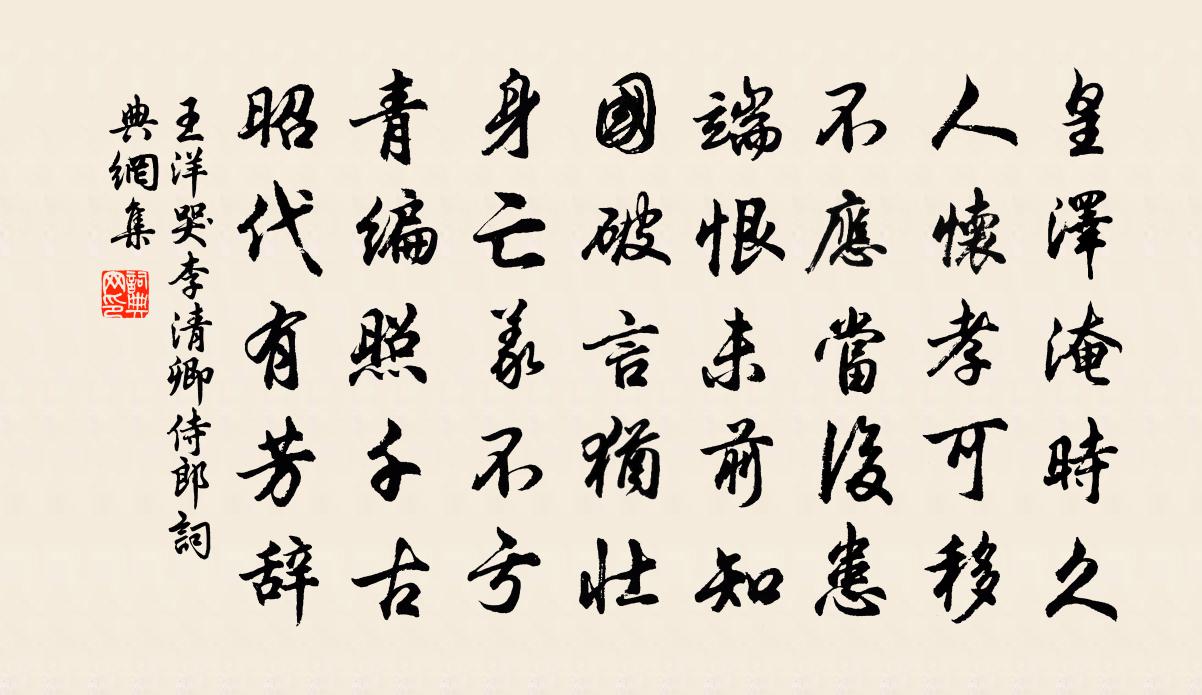 皇澤淹時久
人懷孝可移
不應當後患
端恨未前知
國破言猶壯
身亡義不亏
青編照千古
昭代有芳辞
王洋哭李清卿侍郎詞
典網集
詞典網印